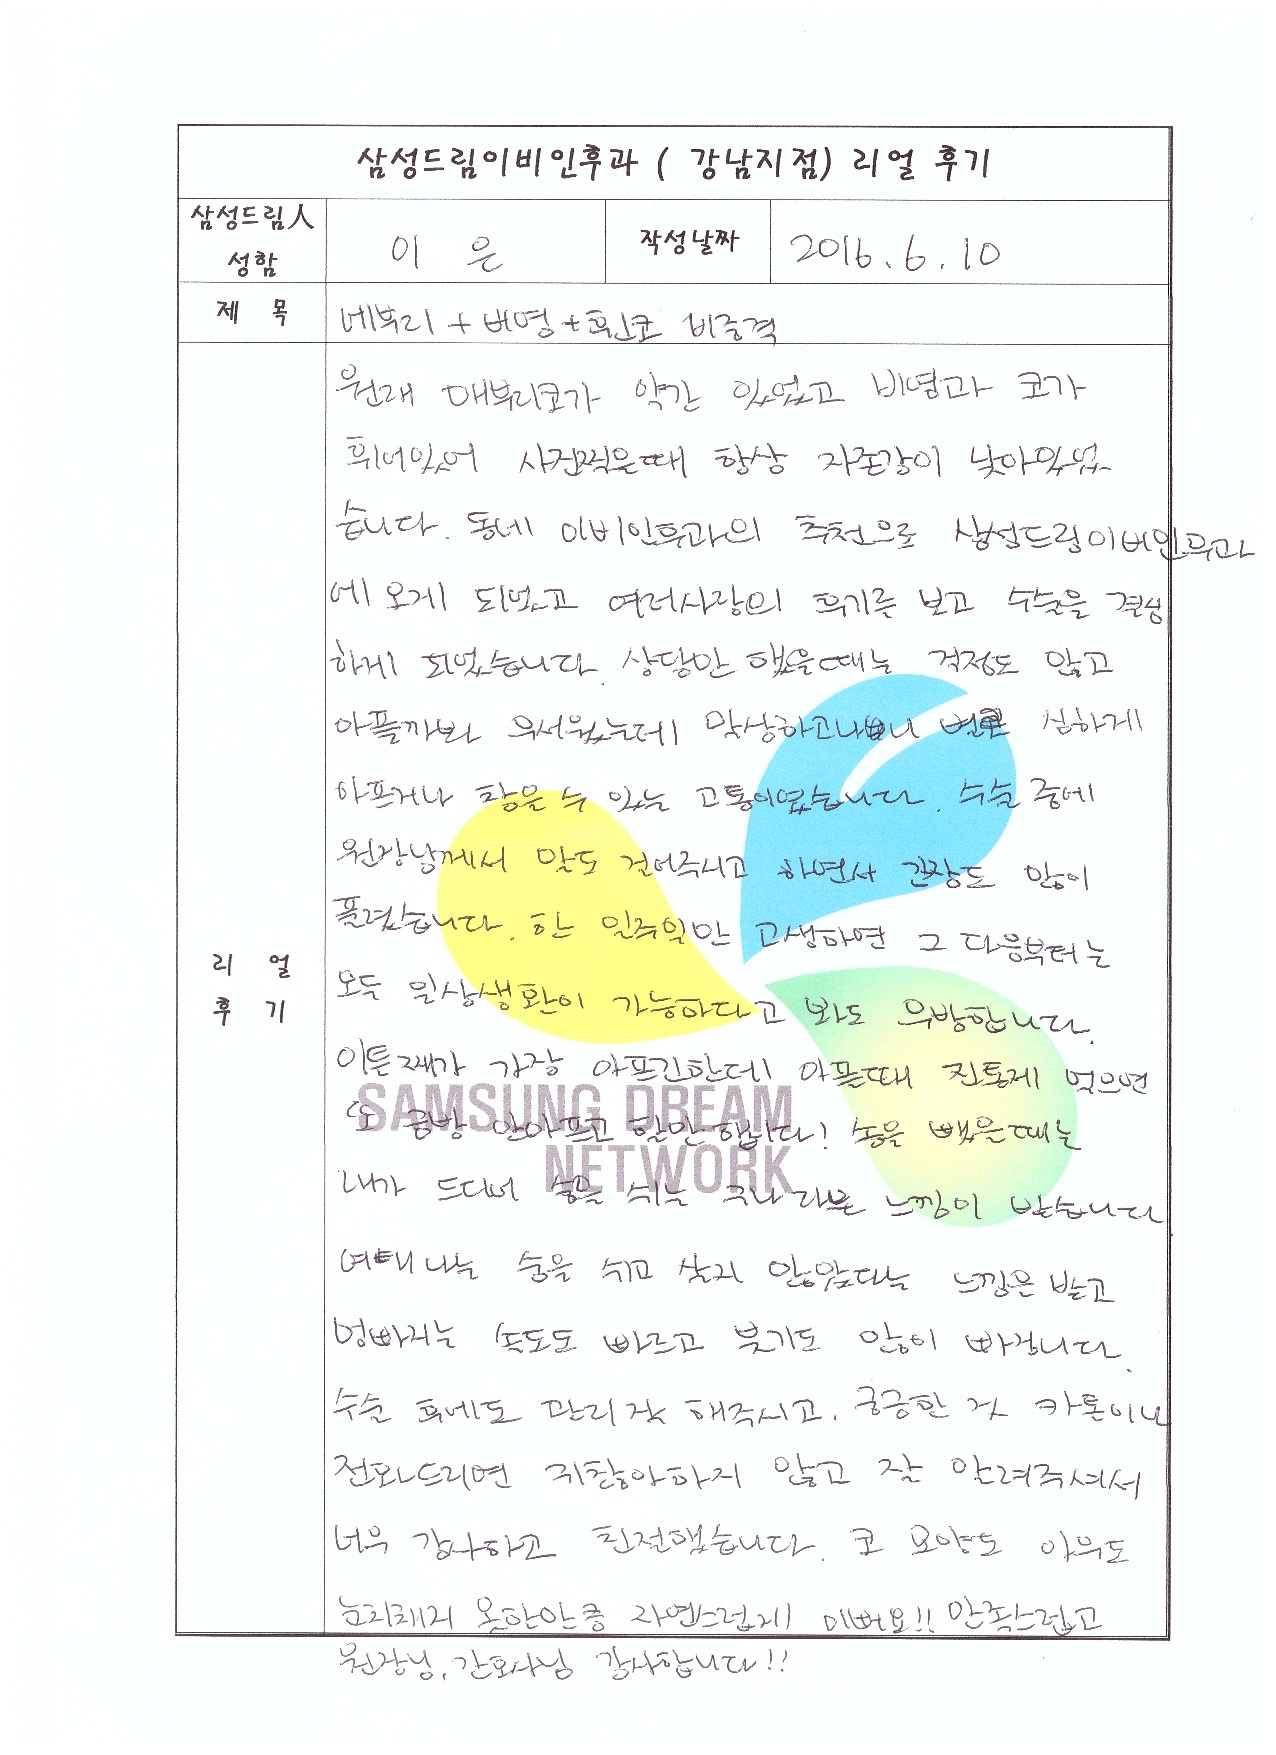 삼성드림이비인후과 ( 강남지점) 리얼 후기
삼성드림人 성함
이 은
작성날짜
2016.6.10
제 목
메부리+비염+휜코 비중격
리 얼 후 기
원래 매부리코가 약간 있었고 비염과 코가
휘어있어 사진찍을때 항상 자존감이 낮아있었
습니다. 동네 이비인후과의 추천으로 삼성드림이비인후과
에 오게 되었고 여러사람의 후기를 보고 수술을 결심
하게 되었습니다. 상담만 했을때는 걱정도 많고
아플까봐 무서웠는데 막상하고나보니 심하게
아프거나 참을 수 있는 고통이였습니다. 수술 중에
원장님께서 말도 걸어주시고 하면서 긴장도 많이
풀렸습니다. 한 일주일만 고생하면 그 다음부터는
모두 일상생활이 가능하다고 봐도 무방합니다.
이튿째가 가장 아프긴한데 아플때 진통제 먹으면
또 금방 안아프고 할만 합니다! 솜을 뺐을때는
내가 드디어 숨을 쉬는 구나 라는 느낌이 받습니다
여태 나는 숨을 쉬고 살지 않았다는 느낌은 받고
멍빠지는 속도도 빠르고 붓기도 많이 빠집니다.
수술 후에도 관리 잘 해주시고, 궁금한 거 카톡이나
전화드리면 귀찮아하지 않고 잘 알려주셔서
너무 감사하고 친절했습니다. 코 모양도 아무도
눈치채지 못한만큼 자연스럽게 이뻐요!! 만족스럽고
원장님, 간호사님 감사합니다!!
SAMSUNG DREAM
NETWORK